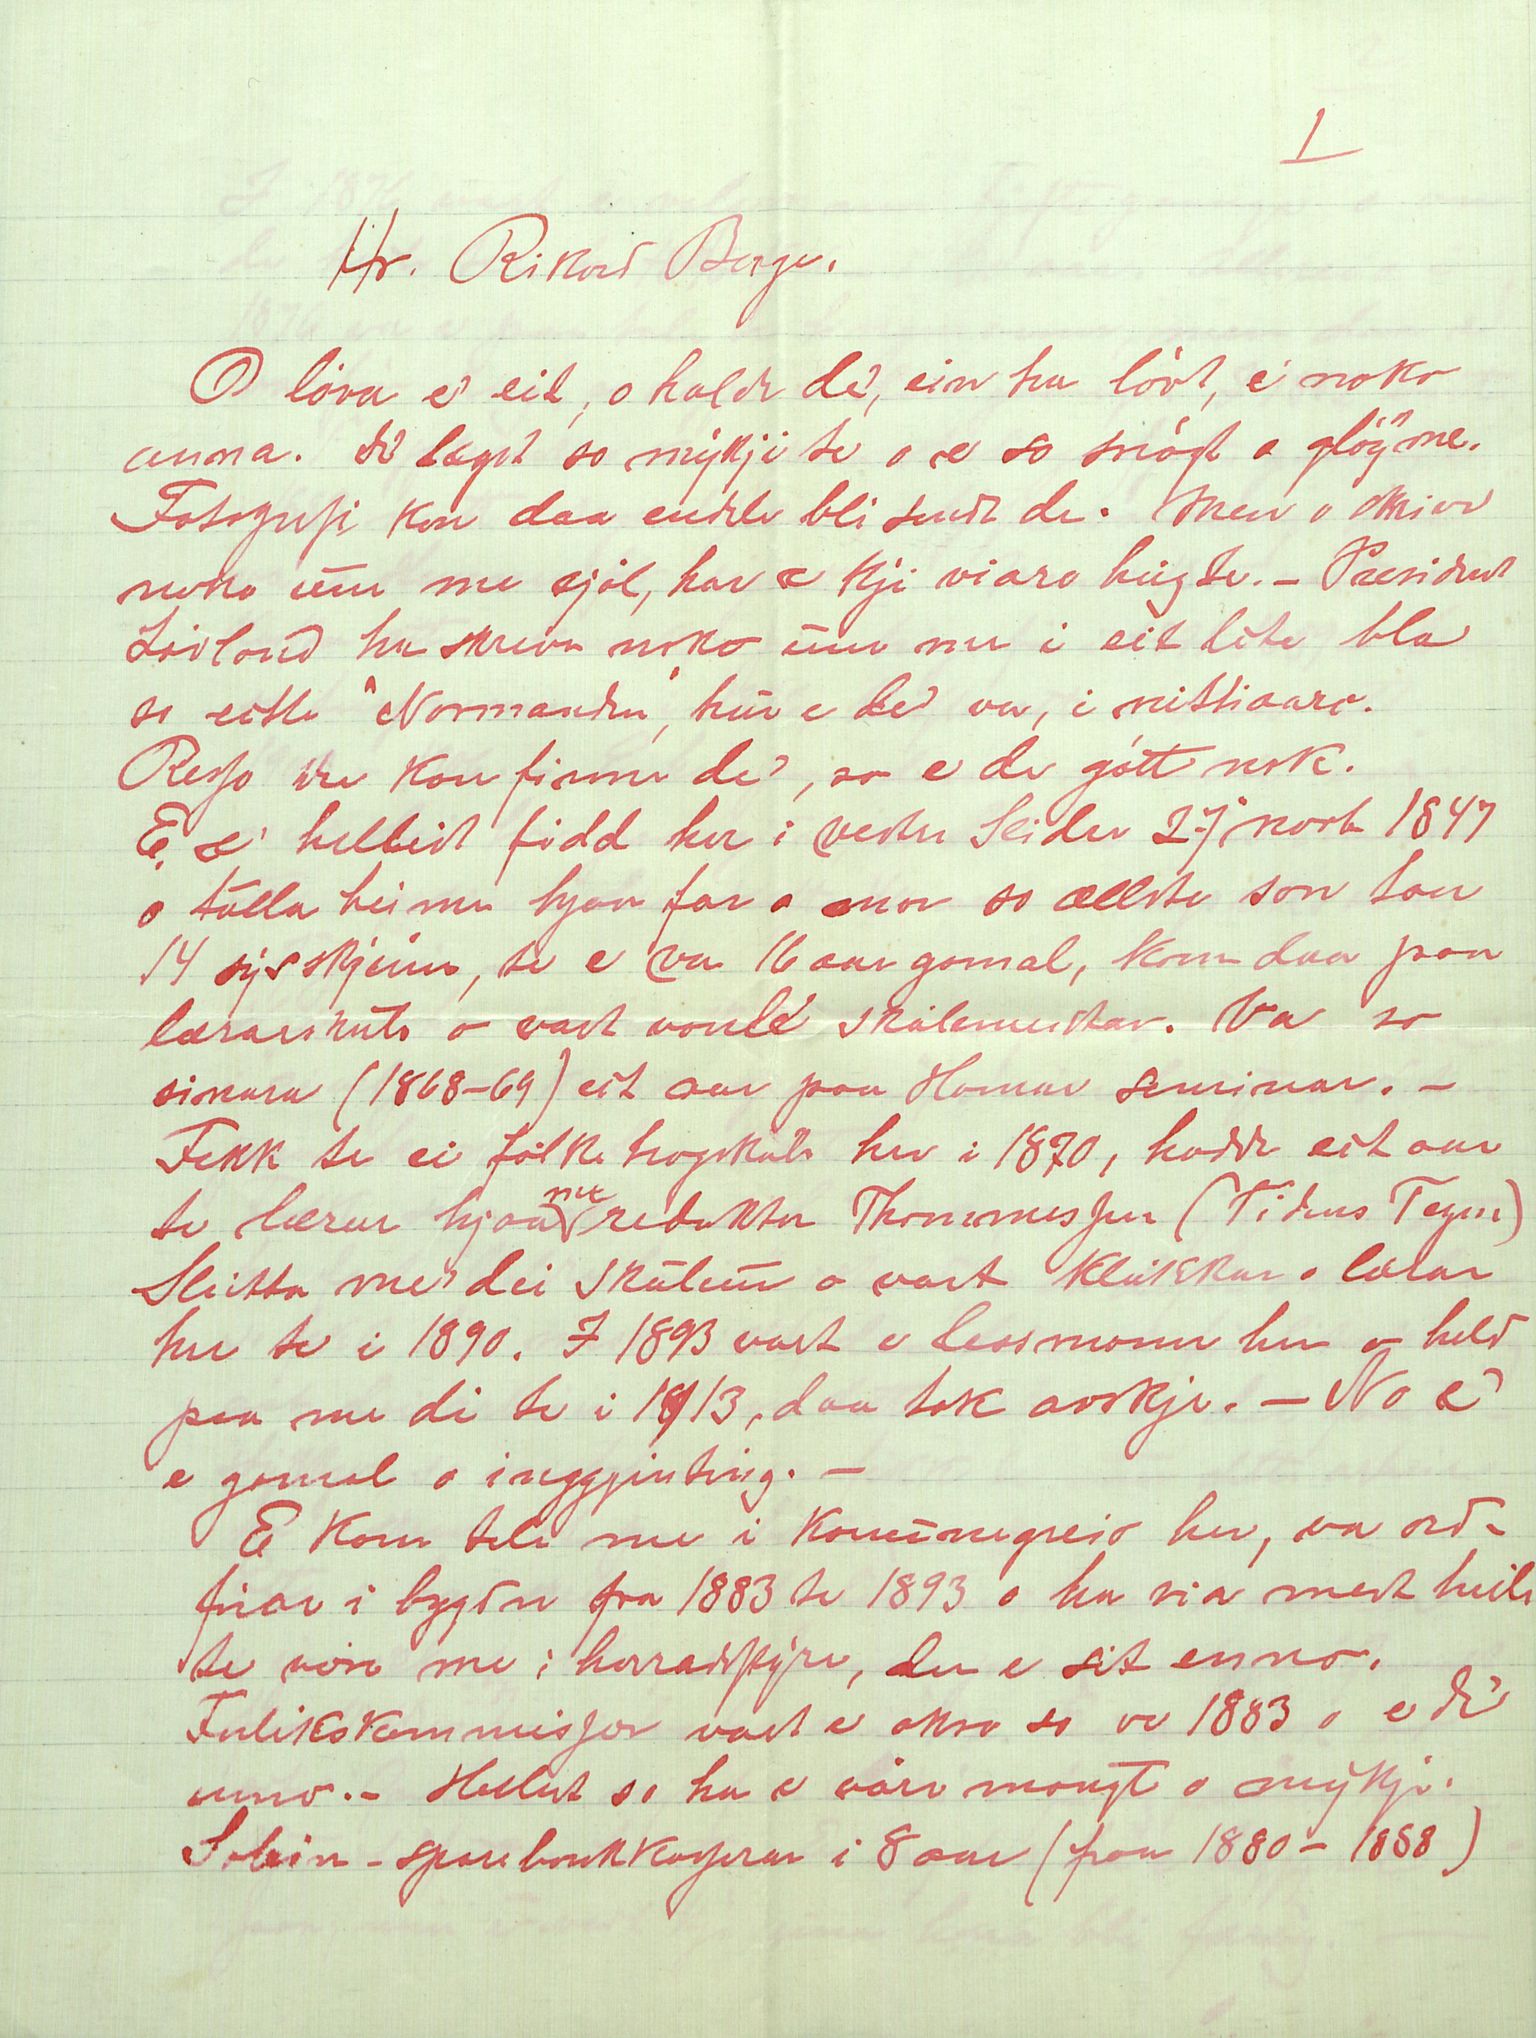 1
Hr. Rikard Berge.
O lóva e' eit, o halde de', ein ha lóvt, e' noko
anna. De' lagst so mykji te o e so snógt o glöyme.
Fotografi kan daa endele bli sendt de. Men o skrive
noko ūm me sjöl, har e kji viare hūg te. – President
Lövland ha skreve noko ūm me i eit lite bla
so eitte "Normanden", hūr e de' va, i nittiaaro.
Resso du kan finne de', so e de gótt nok.
E æ' helleist född her i vestre Slidre 27' novb 1847
o tūlla heime hjaa far o mor so ællste son tau
14 sysskjeinn, te e va 16 aar gomal, kom daa paa
lærarskūle o vart vanle' skūlemeistar. Va so
sinara (1868–69) eit aar paa Hamar seminar. –
Fekk te ei fólkehøgskūle her i 1870, hadde eit aar
te lærar hjaa me redaktør Thommessen (Tidens Tegn)
Slutta me' dei skūleūn o vart klūkkar o lærar
her te i 1890. I 1893 vart e lessmann her o held
paa me di te i 1913, daa tok avskje. – No e'
e gomal o inggjinting. –
E kom tele me i komūnegreio her, va ord-
förar i bygdn fra 1883 te 1893 o ha sia mest heile
te vöre me i herradsstyre, der e sit enno.
Forlikskommissær vart e okso so ve 1883 o e de'
enno. – Helleist so ha e vöre mangt o mykji.
Soleis – sparebankkasserar i 8 aar (fraa 1880 – 1888)